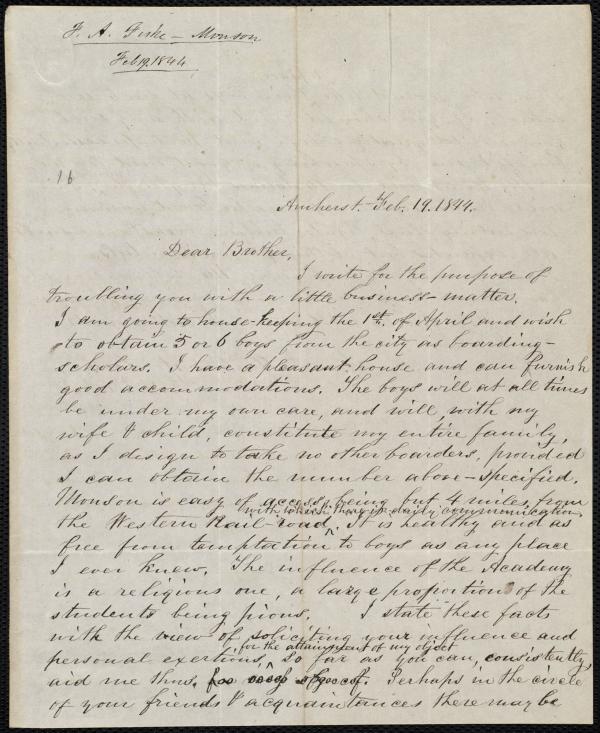 F. A. Fiske – Monson
Feb 19. 1844
16
Amherst. Feb. 19. 1844.
Dear Brother,
I write for the purpose of
troubling you with a little business-matter.
I am going to house-keeping the 1st. of April and wish
to obtain 5 or 6 boys from the city as boarding-
scholars. I have a pleasant house and can furnish
good accommodations. The boys will at all times
be under my own care, and will, with my
wife & child, constitute my entire family,
as I design to take no other boarders, provided
I can obtain the number above-specified.
Monson is easy of access, being but 4 miles from
with which there is daily communication.
the Western Rail-road. ^ It is healthy and as
free from temptation to boys as any place
I ever knew. The influence of the Academy
is a religious one, a large proportion of the
students being pious. I state these facts
with the view of soliciting your influence and
for the attainment of my object
personal exertions, ^ so far as you can, consistently,
aid me thus. Perhaps in the circle
of your friends & acquaintances there may be